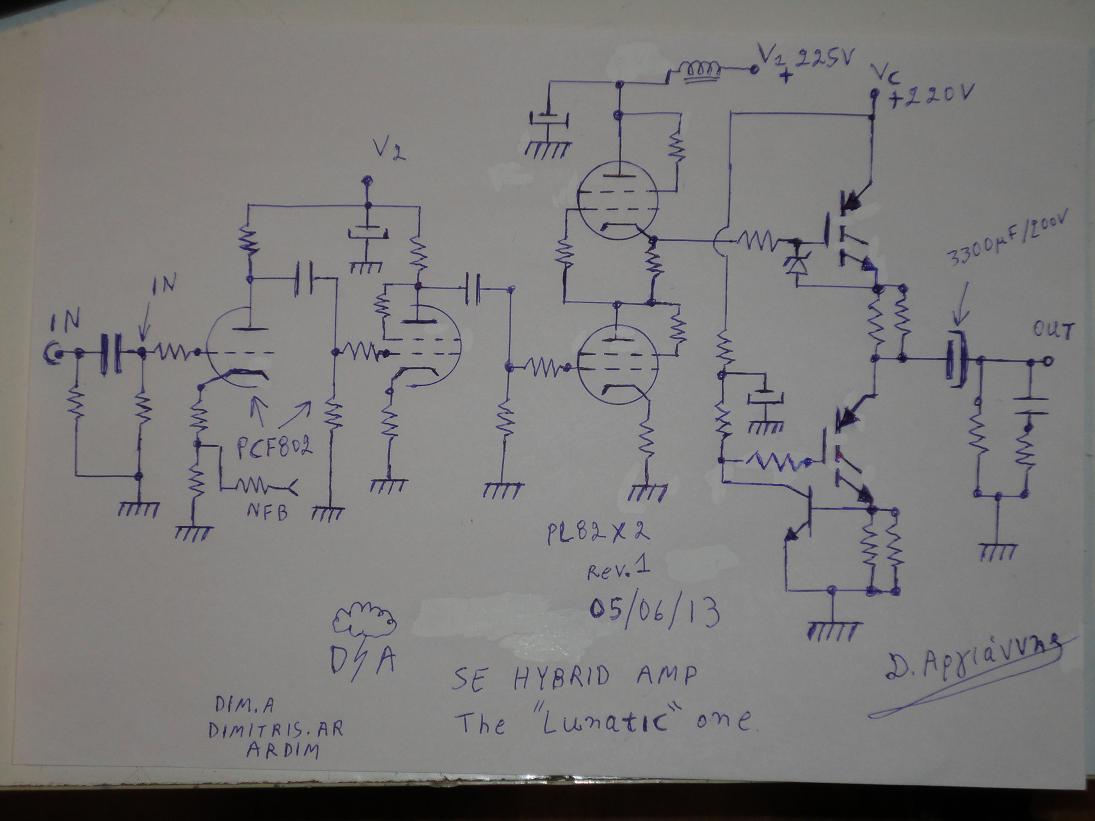 V1 + 225V
Vc +220V
V2
3300µF/200V
IN
IN
OUT
PCF802
NFB
PL82 X 2
Rev.1
05/06/13
D A
SE HYBRID AMP
The "Lunatic" one.
D. Αργιάννης
DIM.A
DIMITRIS.AR
ARDIM